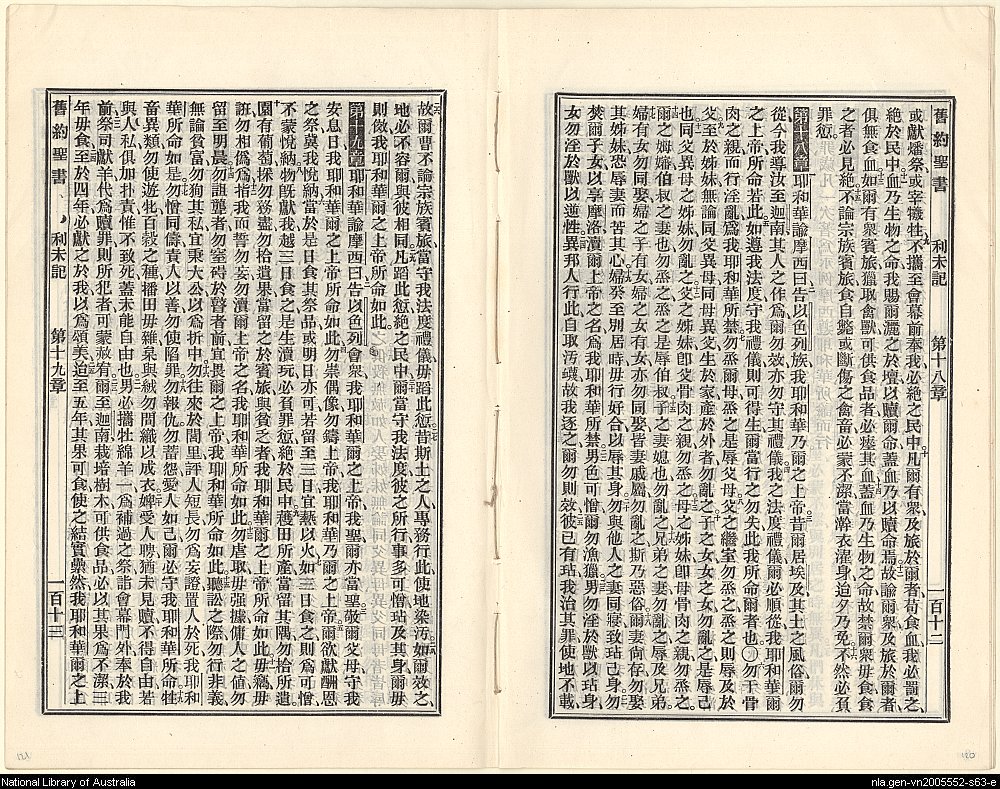 舊約聖書 利未記 第十八章 一百十二
或獻燔祭或宰犧牲不攜至會幕前奉我必絕之民中凡爾有衆及旅於爾者苟食血我必罰之
絕於民中血乃生物之命我賜爾灑之於壇以贖爾命蓋血乃以贖命焉故諭爾衆及旅於爾者
俱無食血如爾有衆賓旅獵取禽獸可供食品者必瘞其血蓋血乃生物之命故禁爾衆毋食食
之者必見絕不論宗族賓旅食自斃或斷傷之禽畜必蒙不潔當澣衣濯身迨夕乃免不然必負
罪愆
第十八章耶和華諭摩西曰告以色列族我耶和華乃爾之上帝昔爾居埃及其土之風俗爾勿
從今我導汝至迦南其人之作爲爾勿效亦勿守其禮儀我之法度禮儀爾必順從我耶和華爾
之上帝所命若此如遵我法度守我禮儀則可得生爾當行之勿失此我所命爾者也〇勿干骨
肉之親而行淫亂爲我耶和華所禁勿烝爾母烝之是辱父母父之繼室勿烝烝之則辱及於
父至於姊妹無論同父異母同母異父生於家產於外者勿亂之子之女女之女勿亂之是辱己
也同父異母之姊妹勿亂之父之姊妹卽父骨肉之親勿烝之母之姊妹卽母骨肉之親勿烝之
爾之姆嬸伯叔之妻也勿烝之烝之是辱伯叔子之妻媳也勿亂之兄弟之妻勿亂之辱及兄弟
婦有女勿同娶婦之子有女婦之女有女亦勿同娶皆妻戚屬勿亂之斯乃惡俗爾妻尙存勿娶
其姊妹恐辱妻而苦其心婦癸至別居時毋行好合以辱其身勿與他人之妻同寢致玷己身勿
焚爾子女以享摩洛瀆爾上帝之名爲我耶和華所禁男色可憎爾勿漁獵男勿淫於獸以玷身
女勿淫於獸以逆性異邦人行此自取汚衊故我逐之爾勿則效彼已有玷我治其罪使地不載
舊約聖書 利未記 第十九章 一百十三
故爾曹不論宗族賓旅當守我法度禮儀毋蹈此愆昔斯土之人專務行此使地染汚如爾效之
地必不容爾與彼相同凡蹈此愆絕之民中爾當守我法度彼之所行事多可憎玷及其身爾毋
則倣我耶和華爾之上帝所命如此
第十九章耶和華諭摩西曰告以色列會衆我耶和華爾之上帝我聖爾亦當聖敬爾父母守我
安息日我耶和華爾之上帝所命如此勿崇偶像勿鑄上帝我耶和華乃爾之上帝爾欲獻酬恩
之祭冀我悅納當於是日食其祭品或明日亦可若留至三日宜爇以火如三日食之則爲可憎
不蒙悅納物旣獻我越三日食之是生瀆玩必負罪愆絕於民中穫田所產當留其隅勿拾所遺
園有葡萄採勿務盡勿拾遺果當留之於賓旅與貧乏者我耶和華爾之上帝所命如此毋竊毋
誑勿相僞爲指我而誓勿妄勿瀆爾上帝之名我耶和華所命如此勿虐取毋强據傭人之値勿
留至明晨勿詛聾者勿窒礙於瞽者前宜畏爾之上帝我耶和華所命如此聽訟之際勿行非義
無論貧富勿狥其私宜秉大公以爲折中勿往來於閭里評人短長勿爲妄證置人於死我耶和
華所命如是勿憎同儔責人以善勿使陷罪勿報仇勿蓄怨愛人如己爾必守我耶和華所命牲
畜異類勿使遊牝百穀之種播田毋雜枲與絨勿間織以成衣婢受人聘猶未見贖不得自由若
與人私俱加扑責惟不致死蓋未能自由也男必攜牡綿羊一爲補過之祭詣會幕門外奉於我
前祭司獻羊代爲贖罪則所犯者可蒙赦宥爾至迦南栽培樹木可供食品必以其果爲不潔三
年毋食至於四年必獻之於我以爲頌美迨至五年其果可食使之結實蘩然我耶和華爾之上
121
120
National Library of Australia
nla.gen-vn2005552-s63-e